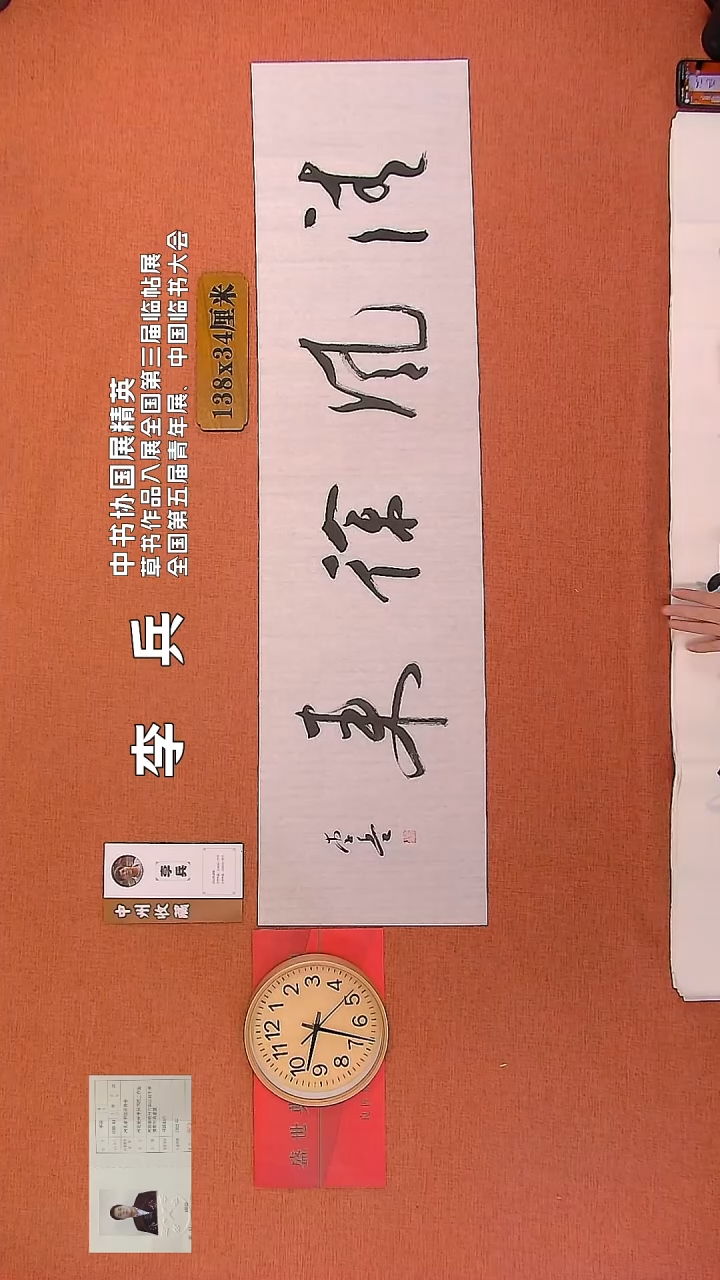 中书协国展精英
草书作品入展全国第三届临帖展
全国第五届青年展、中国临书大会
李 兵
138x34厘米
清风徐来
李兵
李兵
中州收藏
12
1
2
3
4
5
6
7
8
9
10
11
盛世